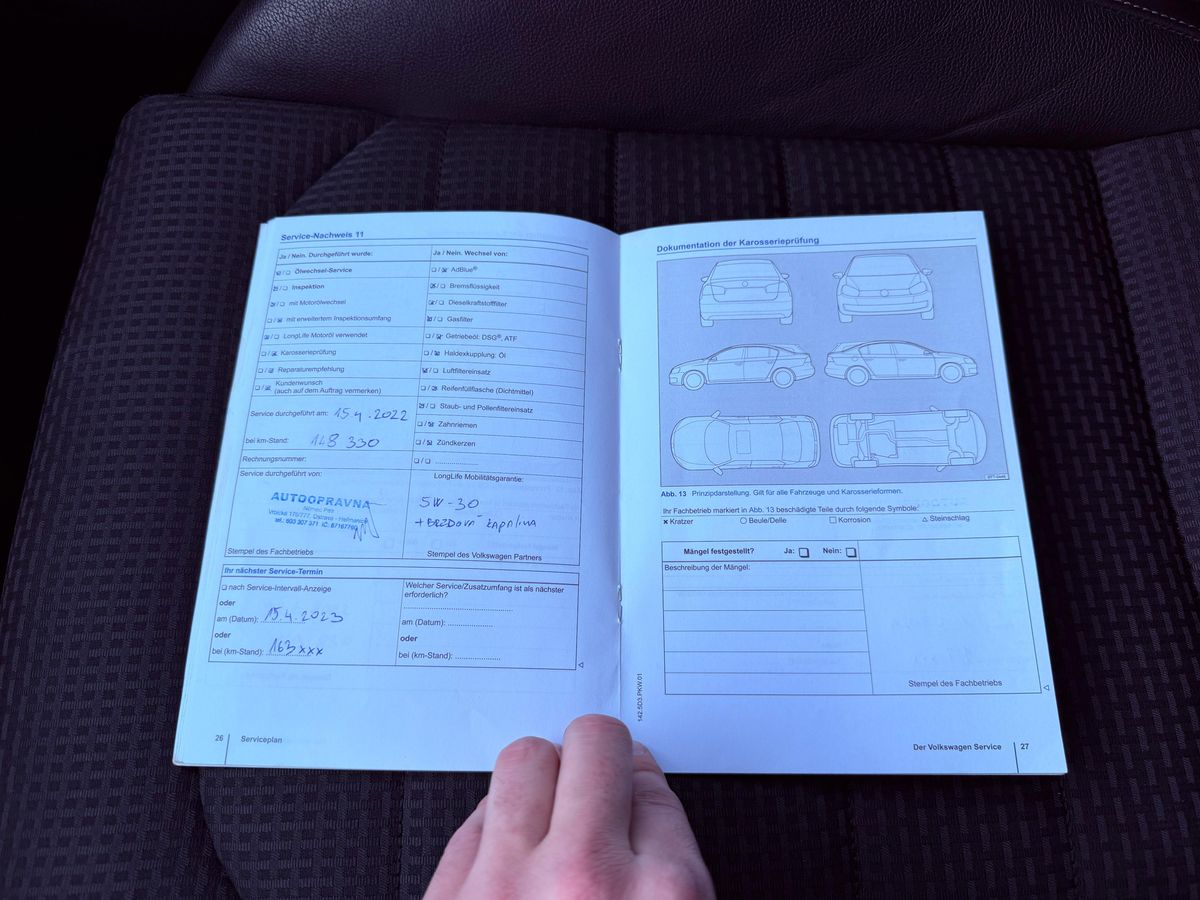 Service-Nachweis 11
Ja / Nein. Durchgeführt wurde:
Ölwechsel-Service
Inspektion
mit Motorölwechsel
mit erweitertem Inspektionsumfang
LongLife Motoröl verwendet
Karosserieprüfung
Reparaturempfehlung
Kundenwunsch
(auch auf dem Auftrag vermerken)
Service durchgeführt am: 15.4.2022
bei km-Stand: 148 330
Rechnungsnummer:
Ja / Nein. Wechsel von:
AdBlue®
Bremsflüssigkeit
Dieselkraftstofffilter
Gasfilter
Getriebeöl: DSG®, ATF
Haldexkupplung: Öl
Luftfiltereinsatz
Reifenfüllflasche (Dichtmittel)
Staub- und Pollenfiltereinsatz
Zahnriemen
Zündkerzen
Service durchgeführt von:
AUTOOPRAVNA
Stempel des Fachbetriebs
LongLife Mobilitätsgarantie:
5W-30
+ BRZDOVÁ KAPALINA
Stempel des Volkswagen Partners
Ihr nächster Service-Termin
nach Service-Intervall-Anzeige
oder
am (Datum): 15.4.2023
oder
bei (km-Stand): 163xxx
Welcher Service/Zusatzumfang ist als nächster
erforderlich?
am (Datum):
oder
bei (km-Stand):
26 Serviceplan
Dokumentation der Karosserieprüfung
Abb. 13 Prinzipdarstellung. Gilt für alle Fahrzeuge und Karosserieformen.
Ihr Fachbetrieb markiert in Abb. 13 beschädigte Teile durch folgende Symbole:
Kratzer Beule/Delle Korrosion Steinschlag
Mängel festgestellt? Ja: Nein:
Beschreibung der Mängel:
Stempel des Fachbetriebs
142.5D3.PKW.01
Der Volkswagen Service 27